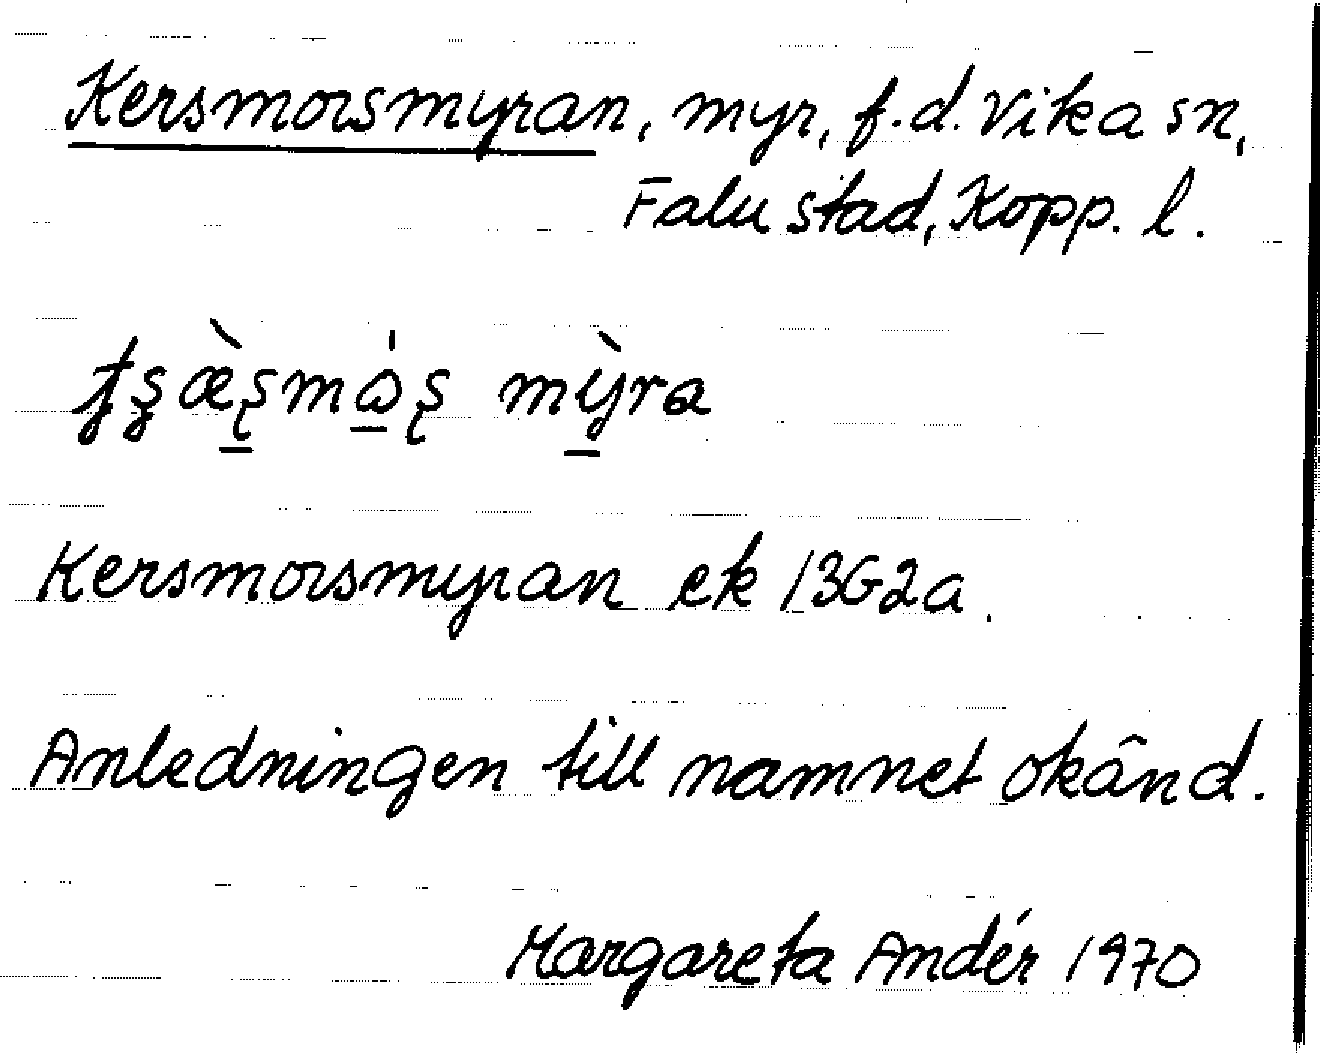 Kersmorsmyran, myr, f.d. Vika sn,
Falu stad, Kopp. l.
mỳra
Kersmorsmyran ek 13G2a.
Anledningen till namnet okänd.
Margareta Andér 1970